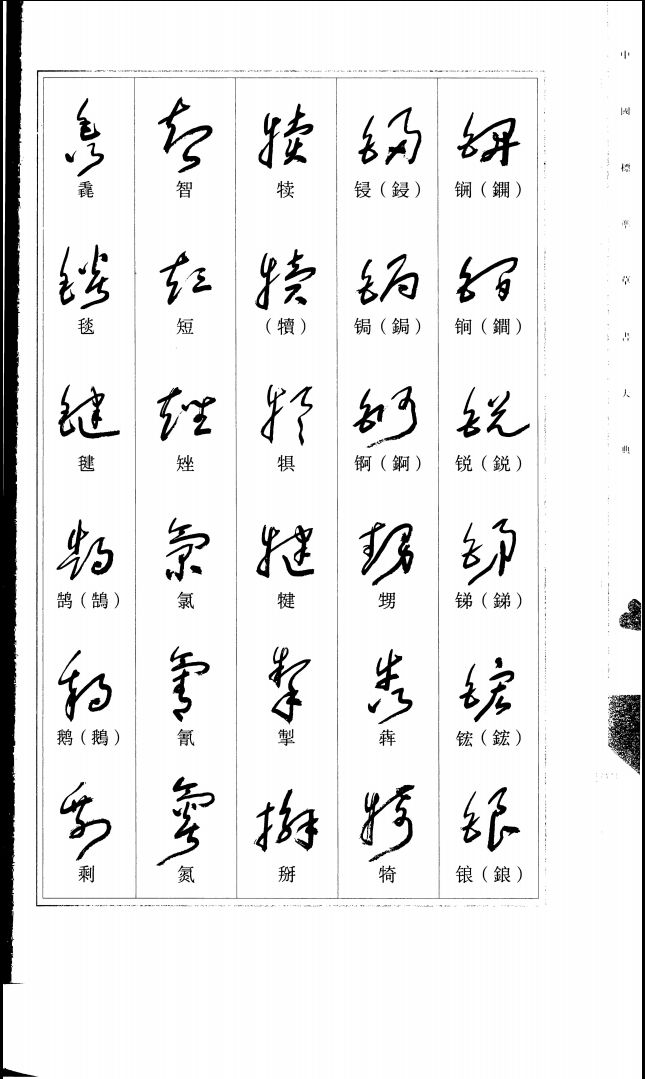 中國標準草書大典
锎（鐦）
锏（鐧）
锐（鋭）
锑（銻）
𬭎（鋐）
锒（鋃）
锓（鋟）
锔（鋦）
锕（錒）
甥
犇
犄
犊
（犢）
犋
犍
掣
掰
智
短
矬
氯
氰
氮
毳
毯
毽
鹄（鵠）
鹅（鵝）
剩